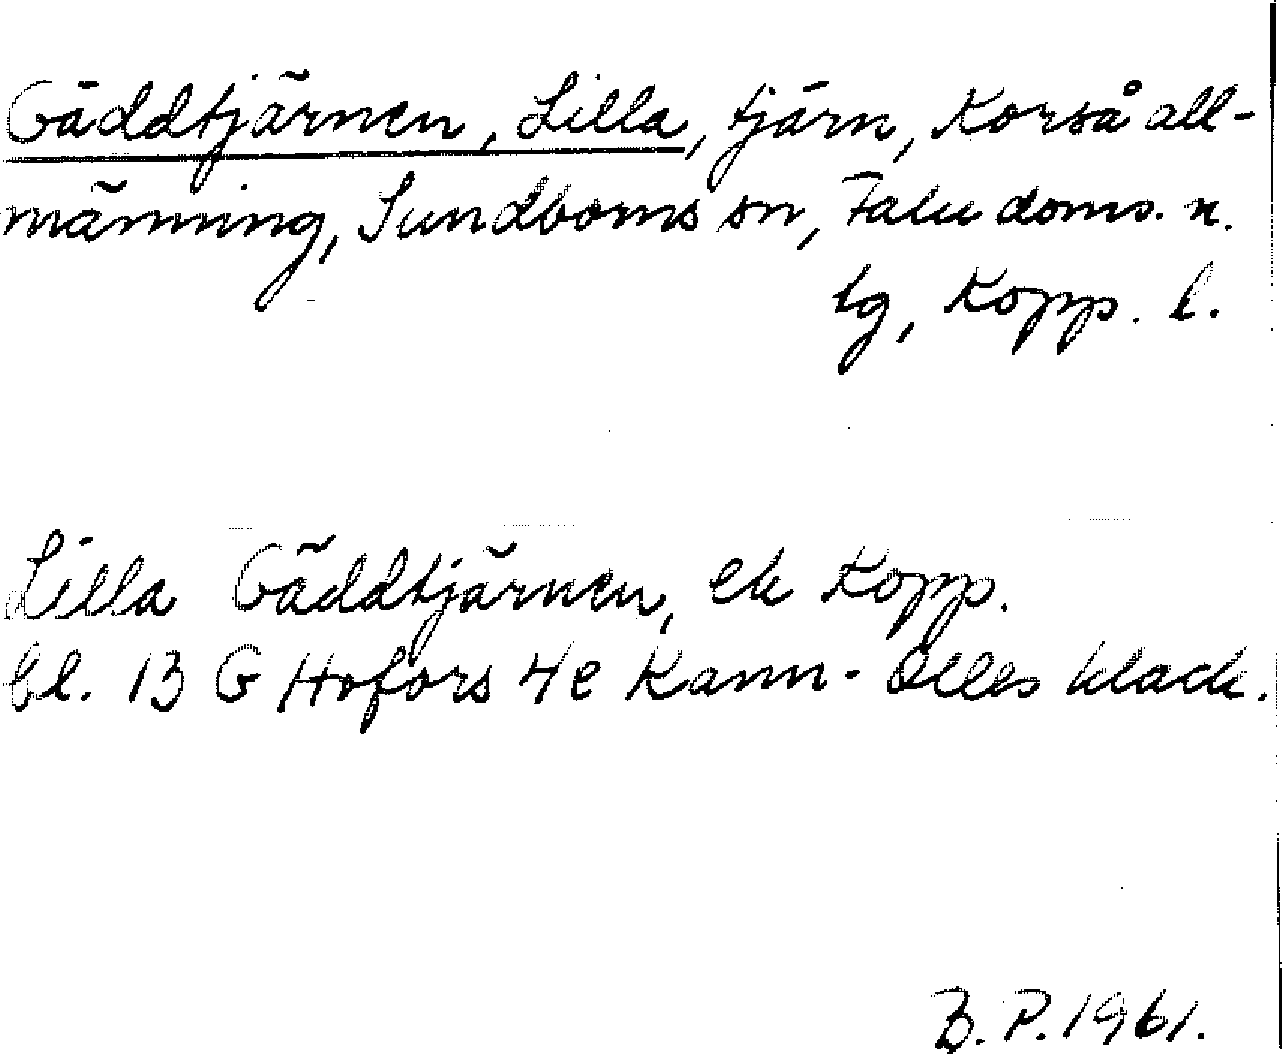 Gäddtjärnen, Lilla, tjärn, Korså all-
männing, Sundborns sn, Falu doms. n.
tg, Kopp. l.
Lilla Gäddtjärnen, ek Kopp.
bl. 13 G Hofors 4e Karin-Olles klack.
B.P. 1961.